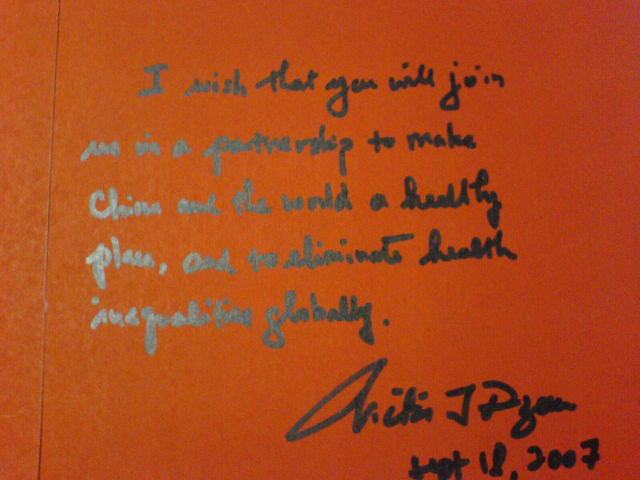 I wish that you will join
us in a partnership to make
China and the world a healthy
place, and to eliminate health
inequalities globally.
Victor J Dzau
Sept 18, 2007